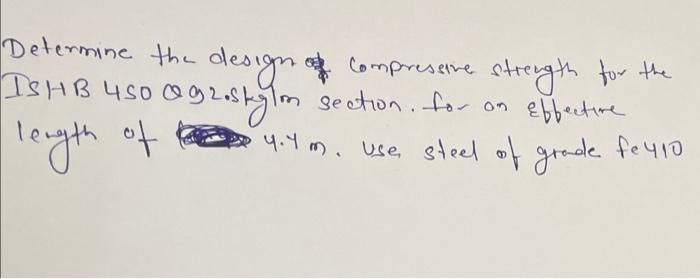 Determine the design compressive strength for the
ISHB 450 @ 92.5kg/m section. for an Effective
length of 4.4 m. use steel of grade fe410